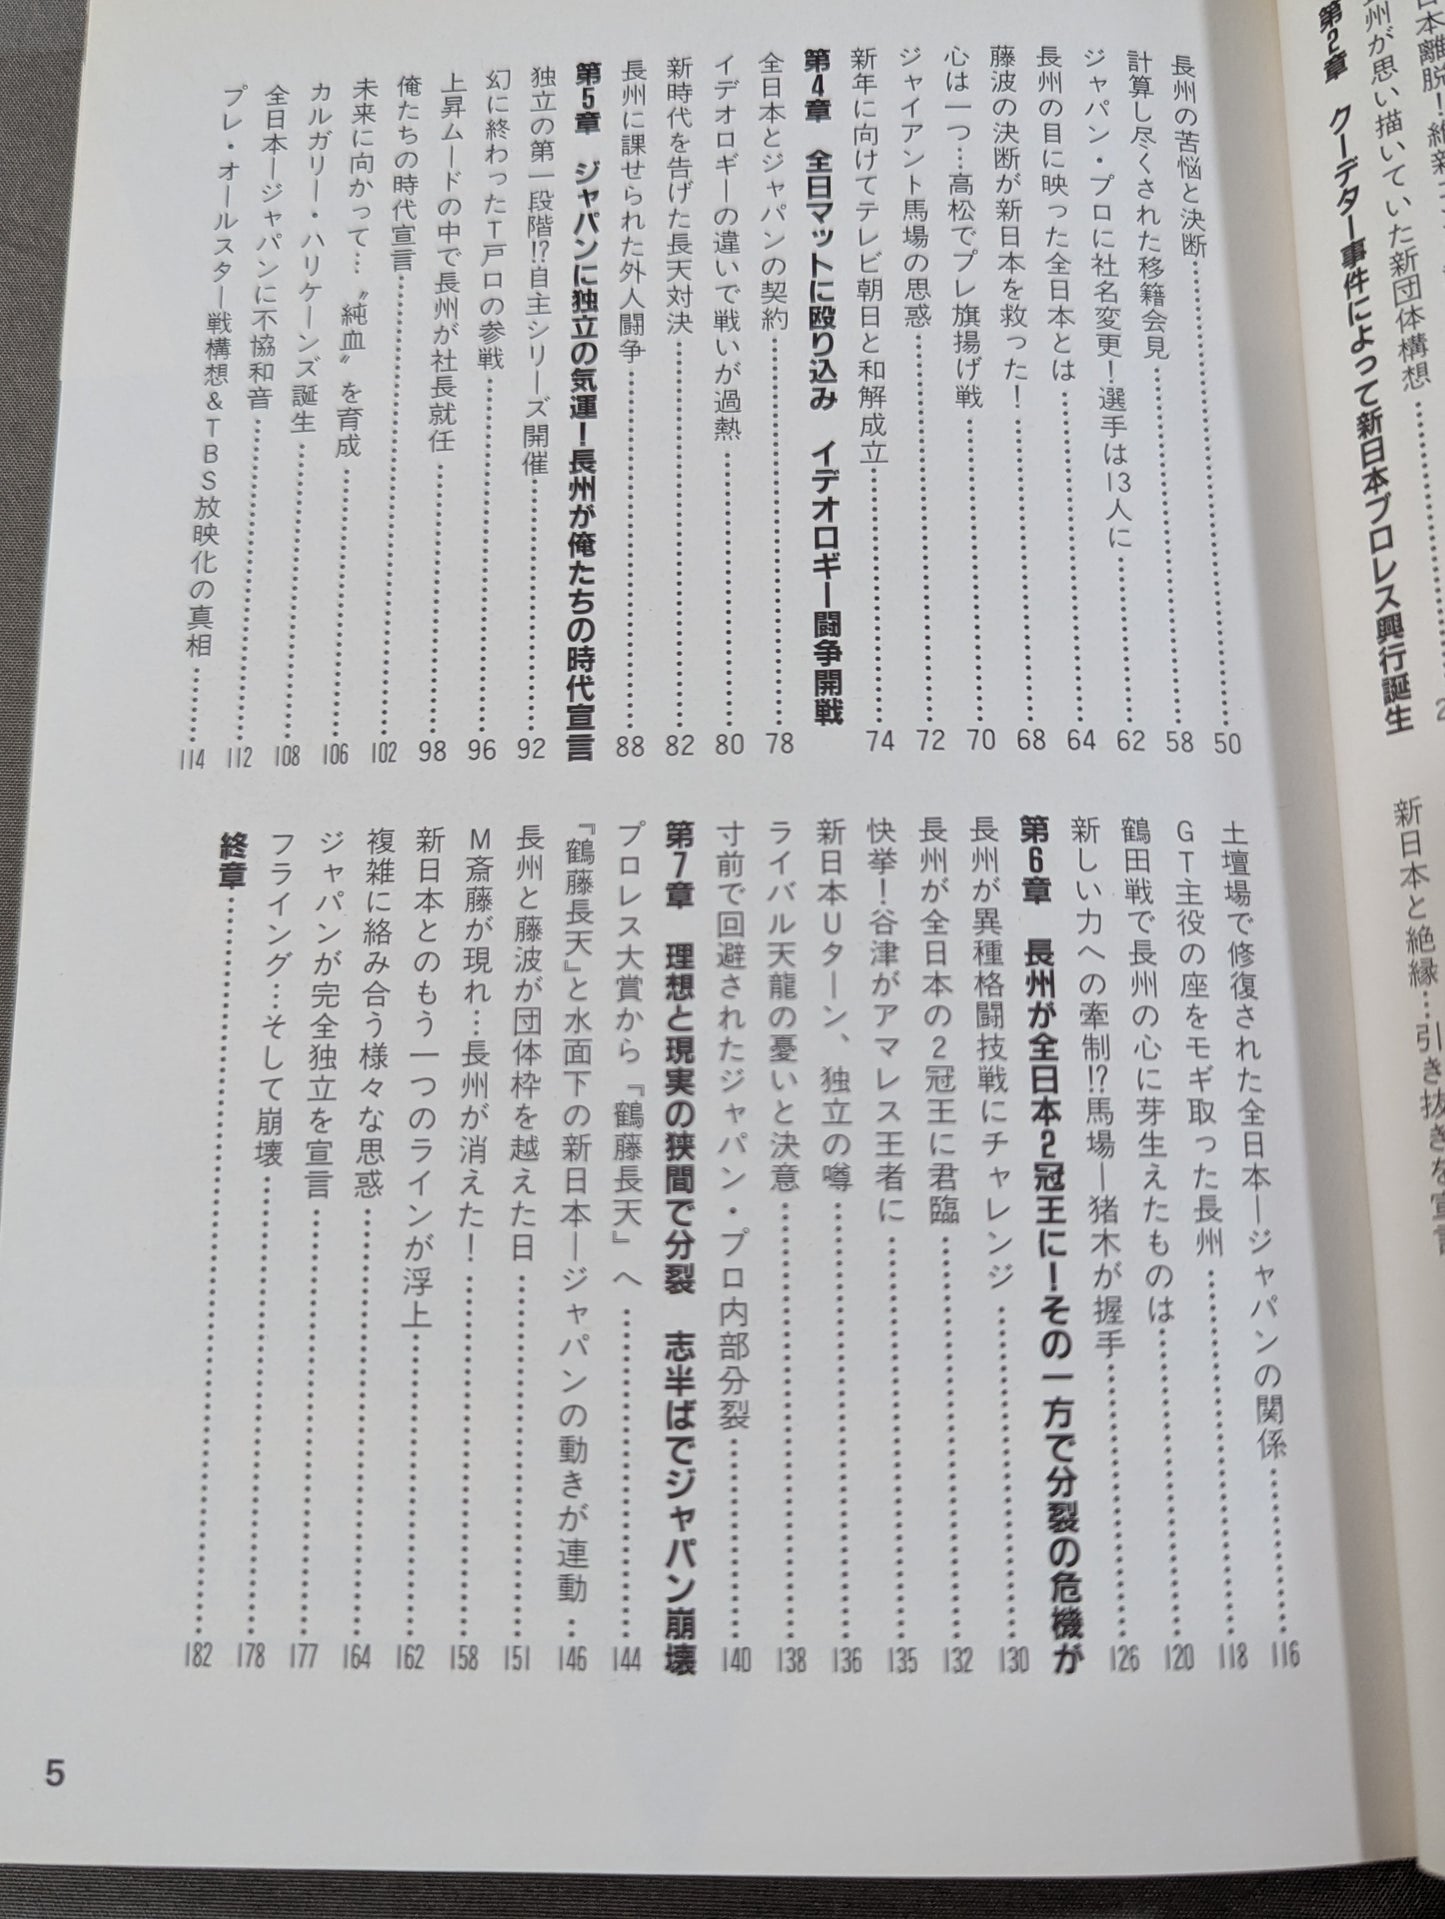 日本離脱！維新
長州が思い描いていた新団体構想
第2章　クーデター事件によって新日本プロレス興行誕生
新日本と絶縁…引き抜きを宣言
長州の苦悩と決断 50
計算し尽くされた移籍会見 58
ジャパン・プロに社名変更！選手は13人に 62
長州の目に映った全日本とは 64
藤波の決断が新日本を救った！ 68
心は一つ…高松でプレ旗揚げ戦 70
ジャイアント馬場の思惑 72
新年に向けてテレビ朝日と和解成立 74
第4章　全日マットに殴り込み　イデオロギー闘争開戦
全日本とジャパンの契約 78
イデオロギーの違いで戦いが過熱 80
新時代を告げた長天対決 82
長州に課せられた外人闘争 88
第5章　ジャパンに独立の気運！長州が俺たちの時代宣言
独立の第一段階!?自主シリーズ開催 92
幻に終わったT戸口の参戦 96
上昇ムードの中で長州が社長就任 98
俺たちの時代宣言 102
未来に向かって…〝純血〟を育成 106
カルガリー・ハリケーンズ誕生 108
全日本―ジャパンに不協和音 112
プレ・オールスター戦構想&TBS放映化の真相 114
土壇場で修復された全日本―ジャパンの関係 116
GT主役の座をモギ取った長州 118
鶴田戦で長州の心に芽生えたものは 120
新しい力への牽制!?馬場―猪木が握手 126
第6章　長州が全日本2冠王に！その一方で分裂の危機が
長州が異種格闘技戦にチャレンジ 130
長州が全日本の2冠王に君臨 132
快挙！谷津がアマレス王者に 135
新日本Uターン、独立の噂 136
ライバル天龍の憂いと決意 138
寸前で回避されたジャパン・プロ内部分裂 140
第7章　理想と現実の狭間で分裂　志半ばでジャパン崩壊
プロレス大賞から『鶴藤長天』へ 144
『鶴藤長天』と水面下の新日本―ジャパンの動きが連動 146
長州と藤波が団体枠を越えた日 151
M斎藤が現れ…長州が消えた！ 158
新日本とのもう一つのラインが浮上 162
複雑に絡み合う様々な思惑 164
ジャパンが完全独立を宣言 177
フライング…そして崩壊 178
終章 182
5